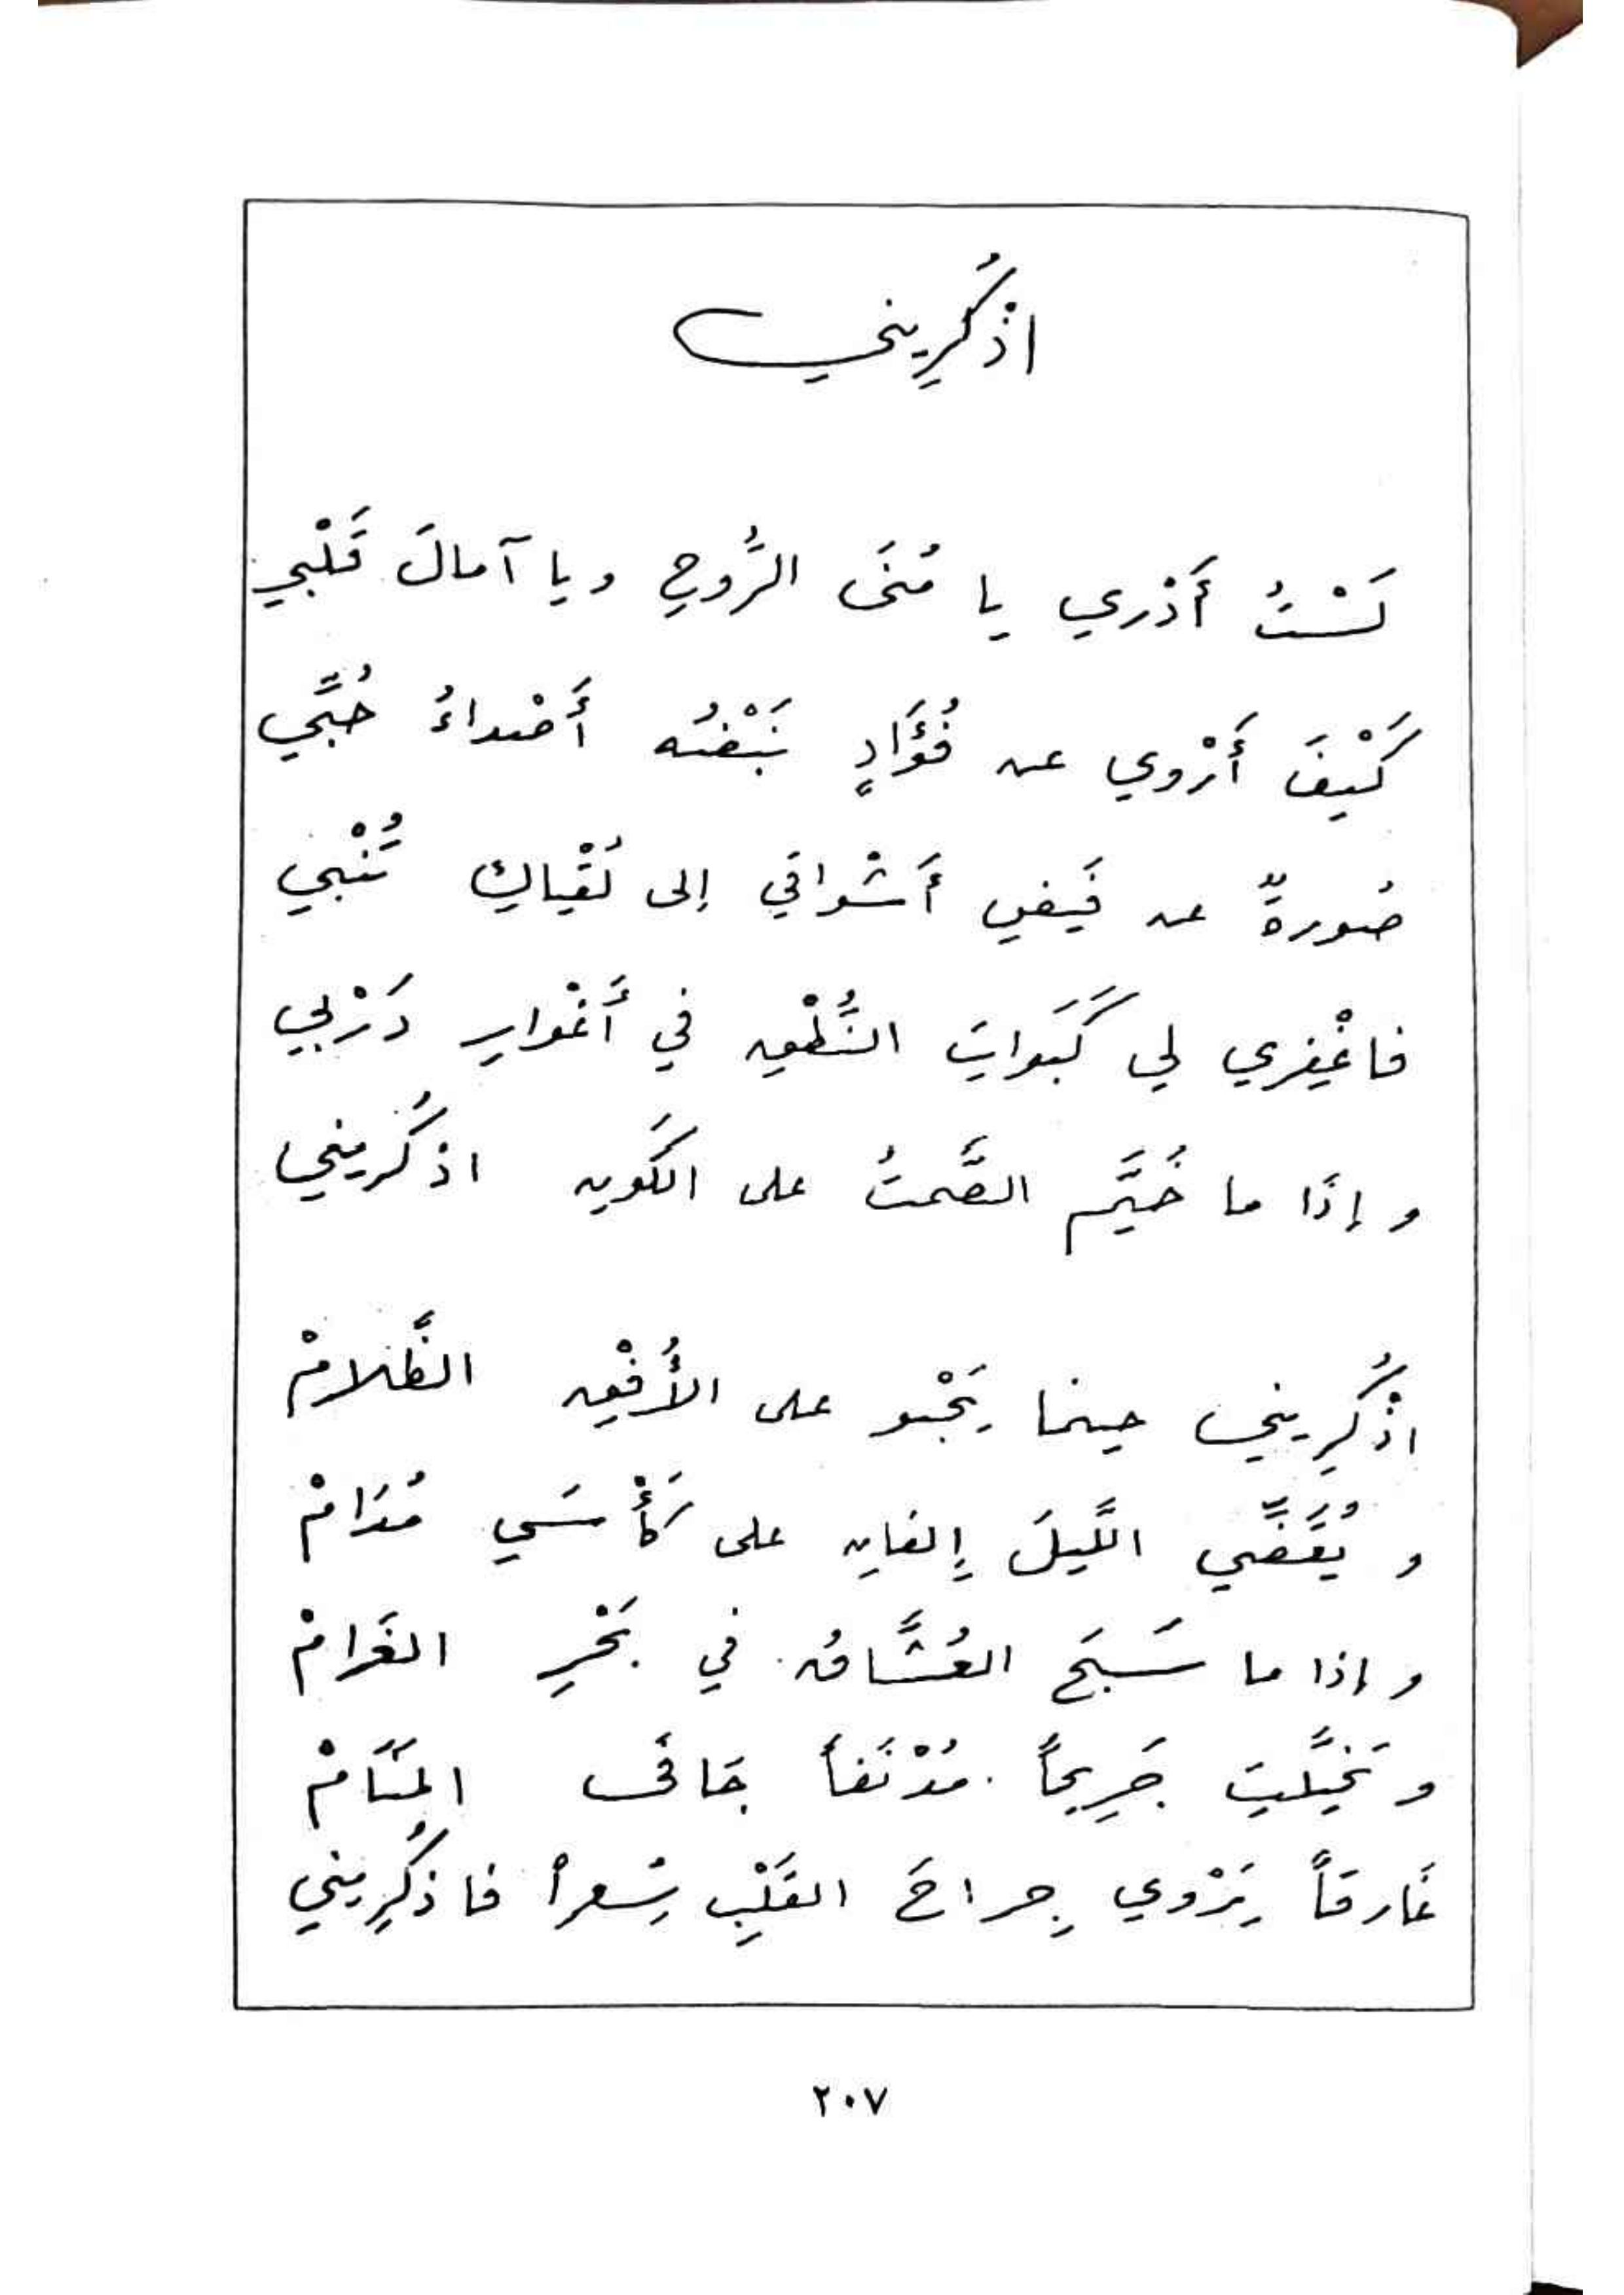 اذْكُرِيني
لَسْتُ أَدْري يا مُنَى الرُّوحِ ويا آمالَ قَلْبي
كَيْفَ أَرْوي عن فُؤَادٍ نَبْضُه أَصْداءُ حُبِّي
صُورةً عن فَيضِ أَشْواقي إلى لُقْياكِ تُنْبي
فاغْفِري لي كَبَواتِ النُّطْقِ في أَغْوارِ دَرْبي
و إذَا ما خَيَّم الصَّمتُ على الكَونِ اذكُريني
اذْكُرِيني حينما يَحْبو على الأُفْقِ الظَّلامْ
و يُقَضِّي اللَّيلَ إِلفانِ على كَأْسَي مُدَامْ
و إذا ما سَبَحَ العُشَّاقُ في بَحْرِ الغَرامْ
و تَخَيَّلتِ جَرِيحاً مُدْنَفاً جَافَى المَنَامْ
غَارقاً يَرْوي جِراحَ القَلْبِ شِعراً فاذكُرِيني
٢٠٧